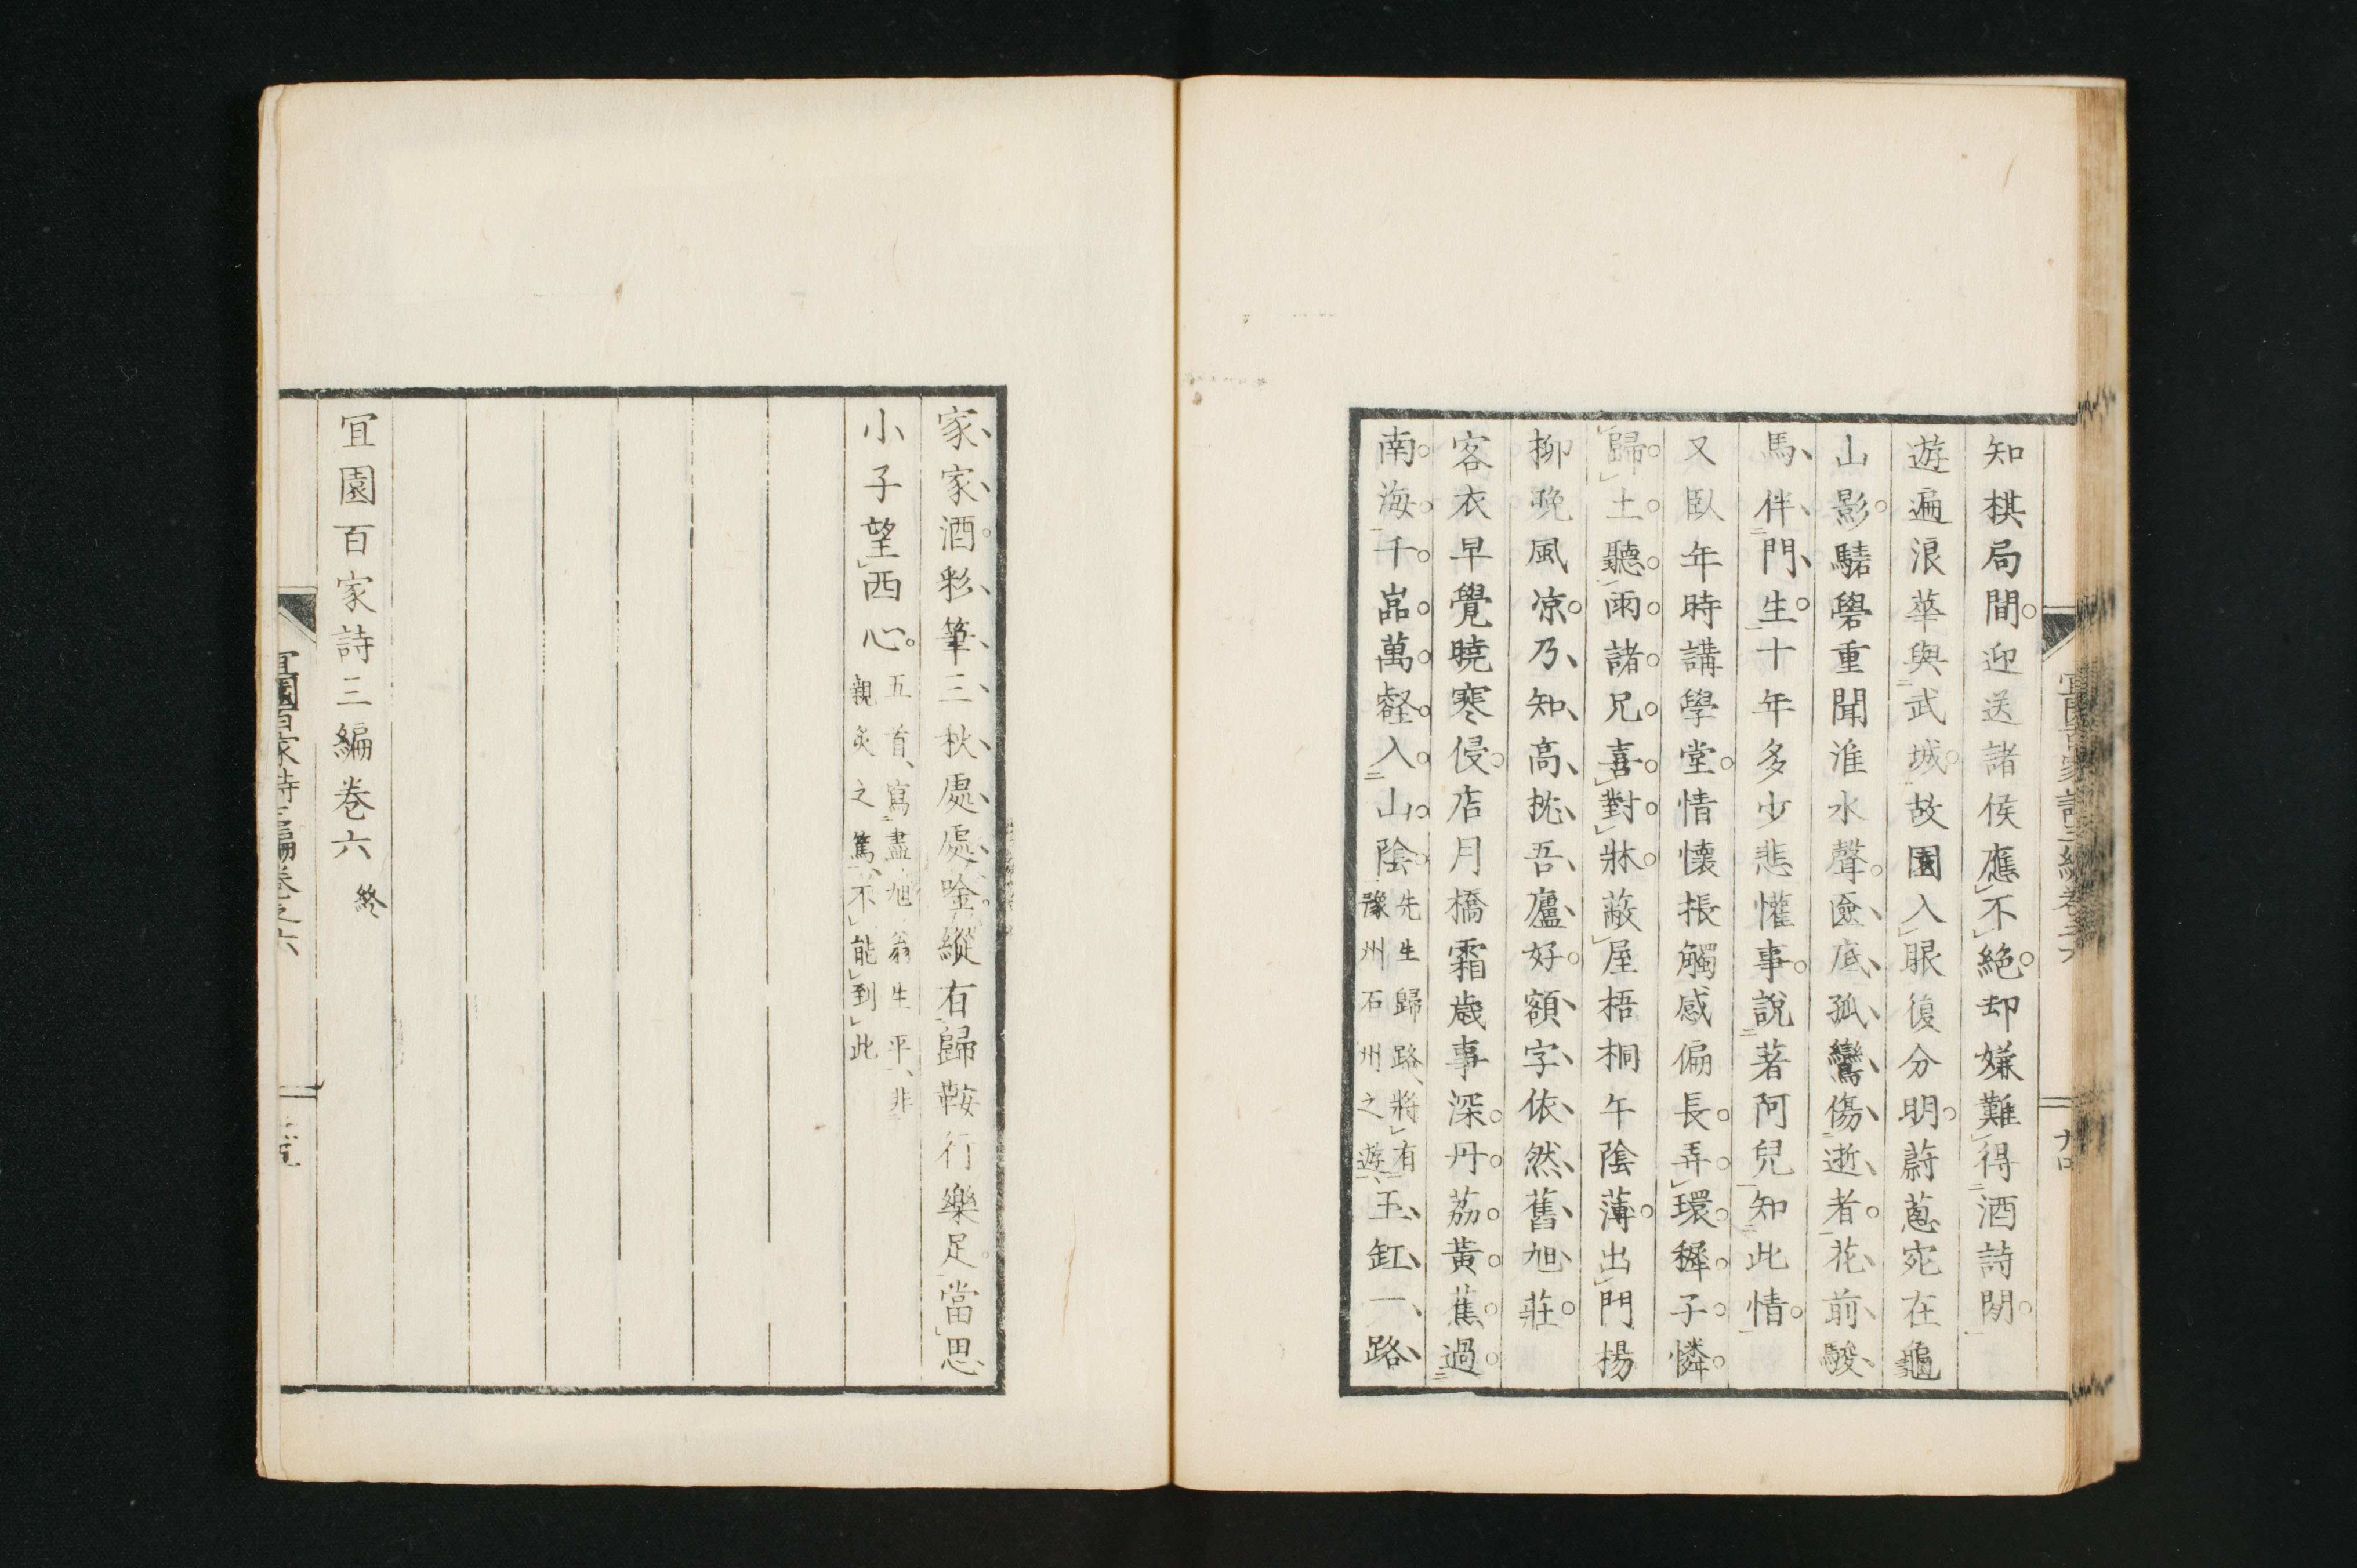 知棋局間迎送諸侯應不絕却嫌難得酒詩閒
遊遍浪華與武城故園入眼復分明蔚蔥宛在龜
山影驕礐重聞淮水聲匳底孤鸞傷逝者花前駿
馬伴門生十年多少悲懽事說著阿兒知此情
又臥年時講學堂情懷掁觸感偏長弄環穉子憐
歸土聽雨諸兄喜對牀蔽屋梧桐午陰薄出門揚
柳晚風凉乃知高枕吾廬好額字依然舊旭莊
客衣早覺曉寒侵店月橋霜歲事深丹荔黃蕉過
南海千嵓萬壑入山陰
先生歸路將有
豫州石州之遊
玉缸一路
家家酒彩筆三秋處處唫縱有歸鞍行樂足當思
小子望西心
五首寫盡旭翁生平非
親炙之篤不能到此
宜園百家詩三編卷六
終
宜園百家詩三編卷之六